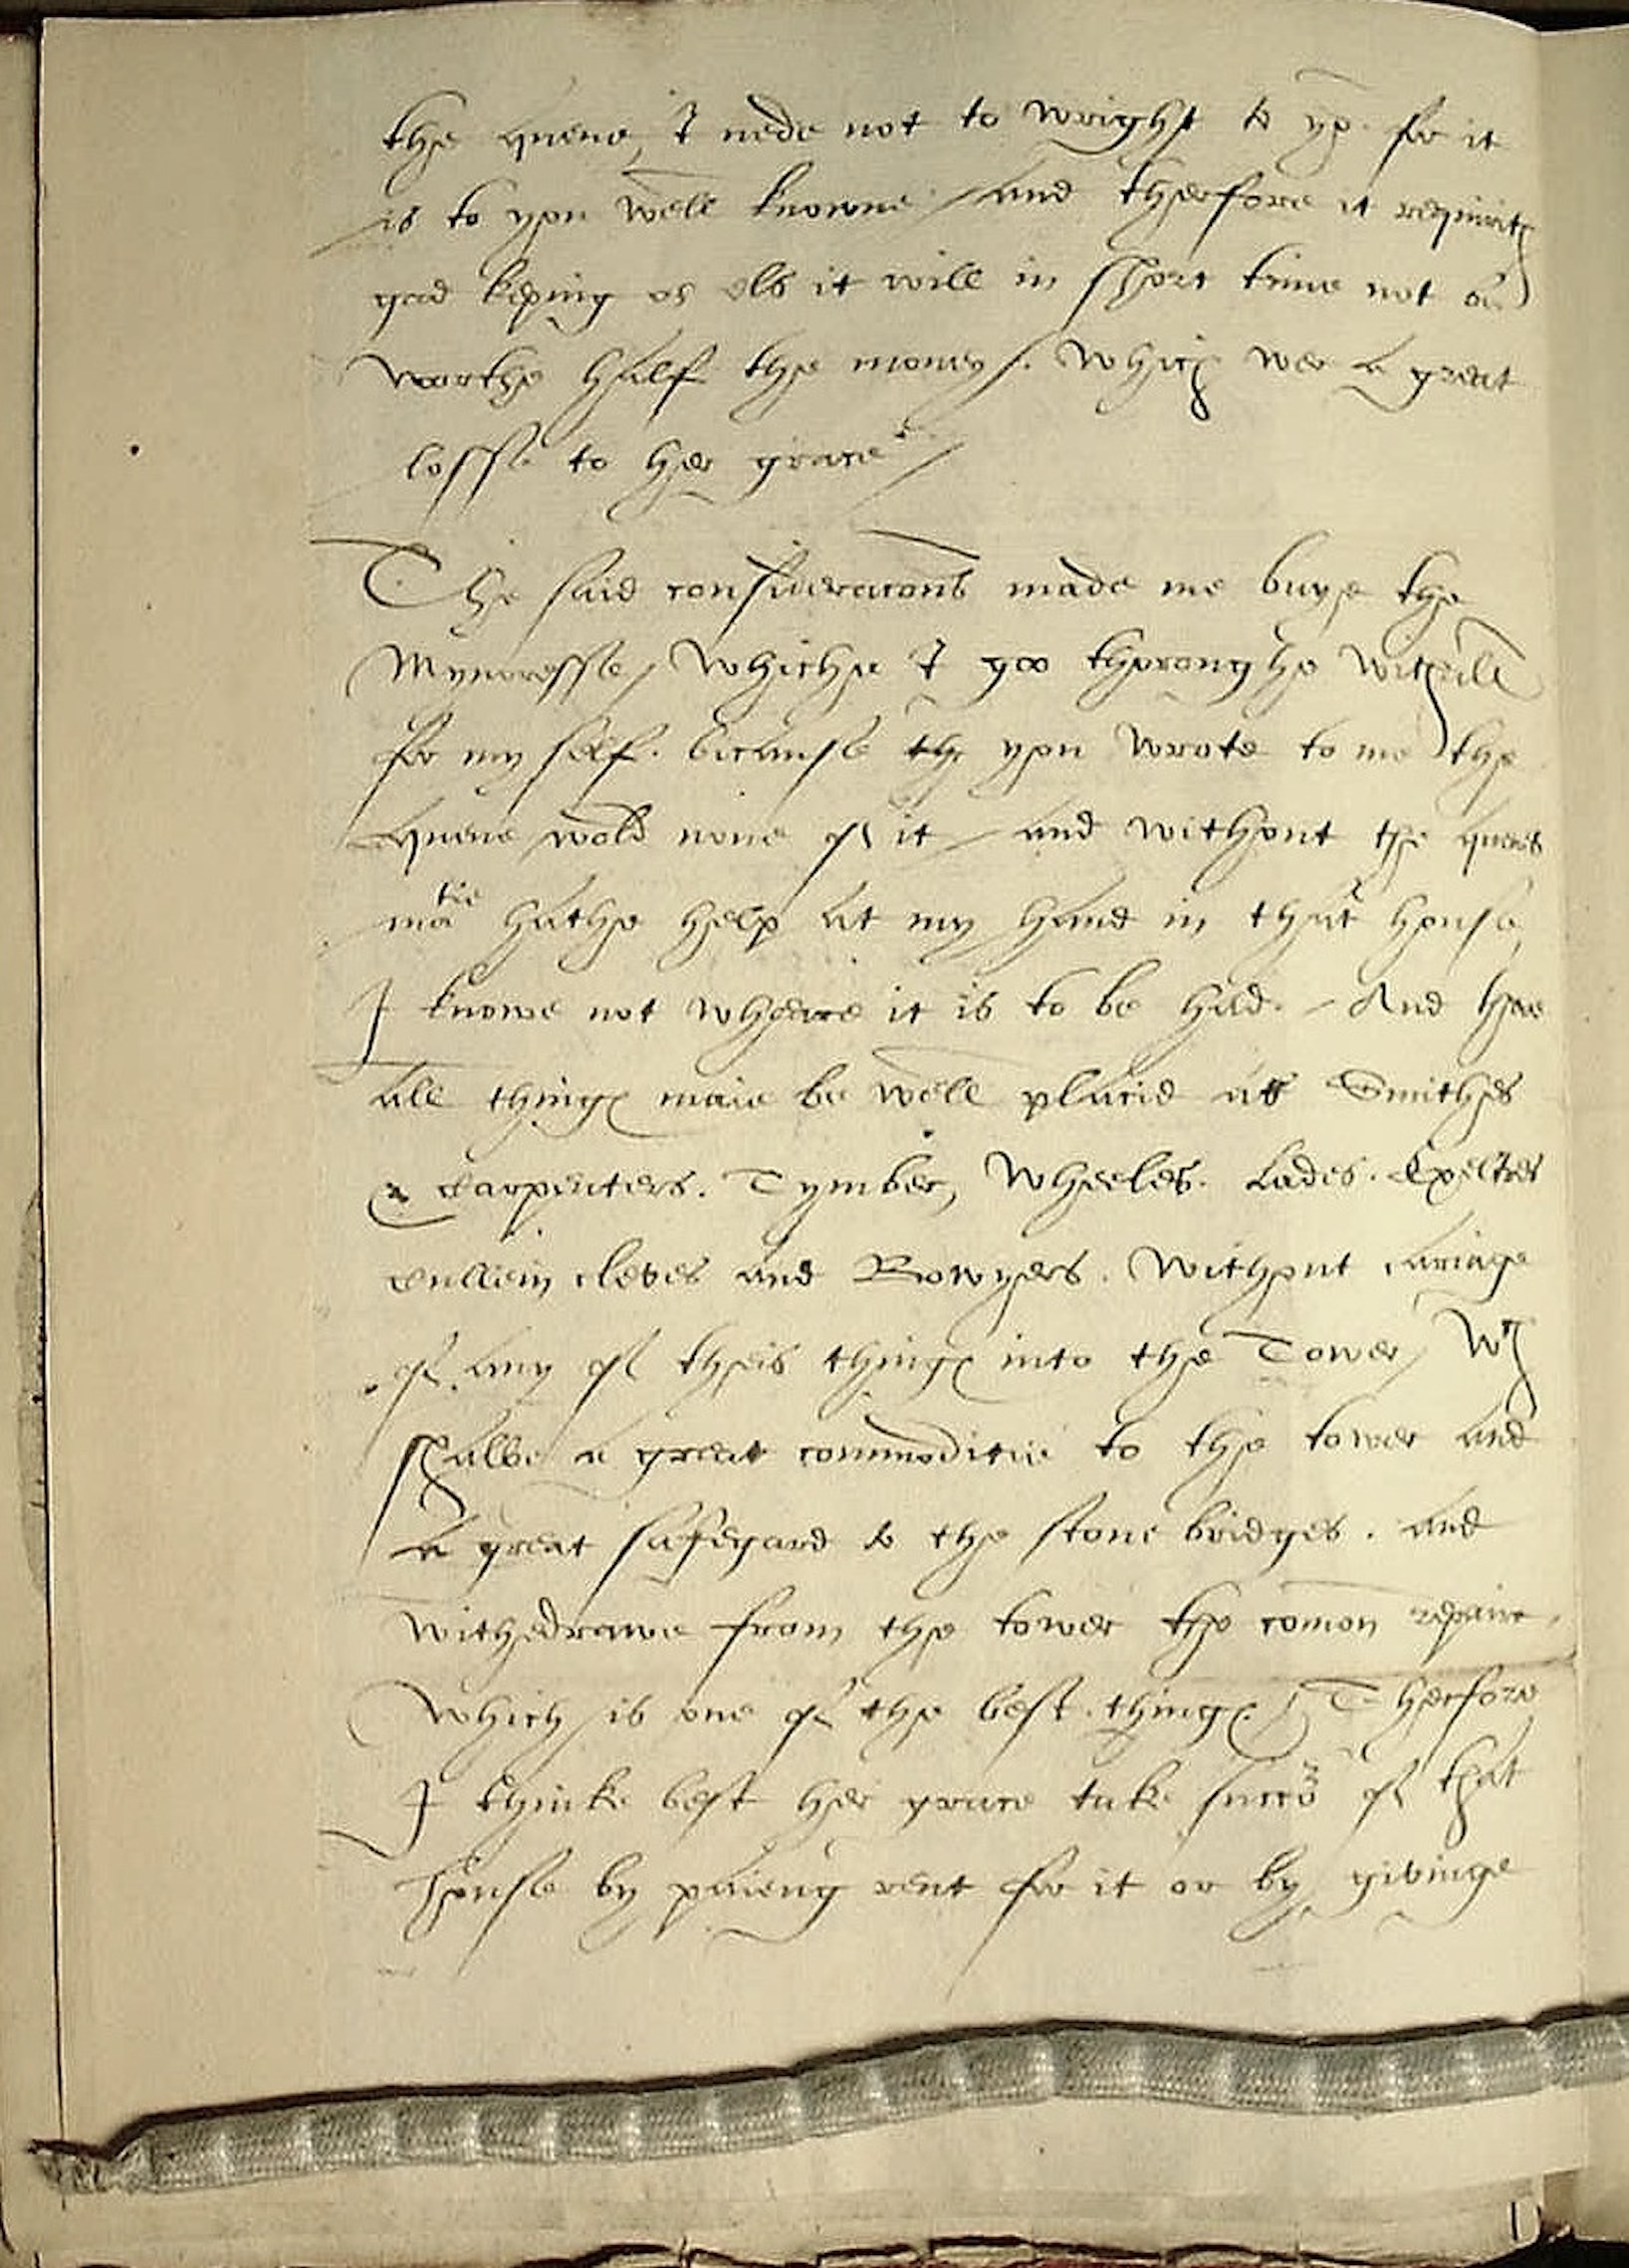 the quene, I nede not to wright to yow for it
is to you well knowne / and therfore it requirith
good keping or els it will in short time not be
worthe half the money. Which wer a great
losse to her grace /
The said consideracons made me buye the
Mynoresse / Whiche I goo throughe withall
for my self. bicause th you wrote to me the
quene wold none of it / and without the quenes
matie hathe help at my hand in that house,
I knowe not wheare it is to be had. And there
all thinges maie be well placid as Smithes
& Carpenters. Tymber, Wheeles. Lades. Exeltres
Cullein cleves and Bowyers. Without cariage
of any of theis thinges into the Tower / Wch
shalbe a great commoditie to the tower and
a great safegard to the stone bridges. and
withedrawe from the tower the comon repaire,
Which is one of the best thinges / Therfore
I thinke best her grace take succor of that
house by paieng rent for it or by givinge